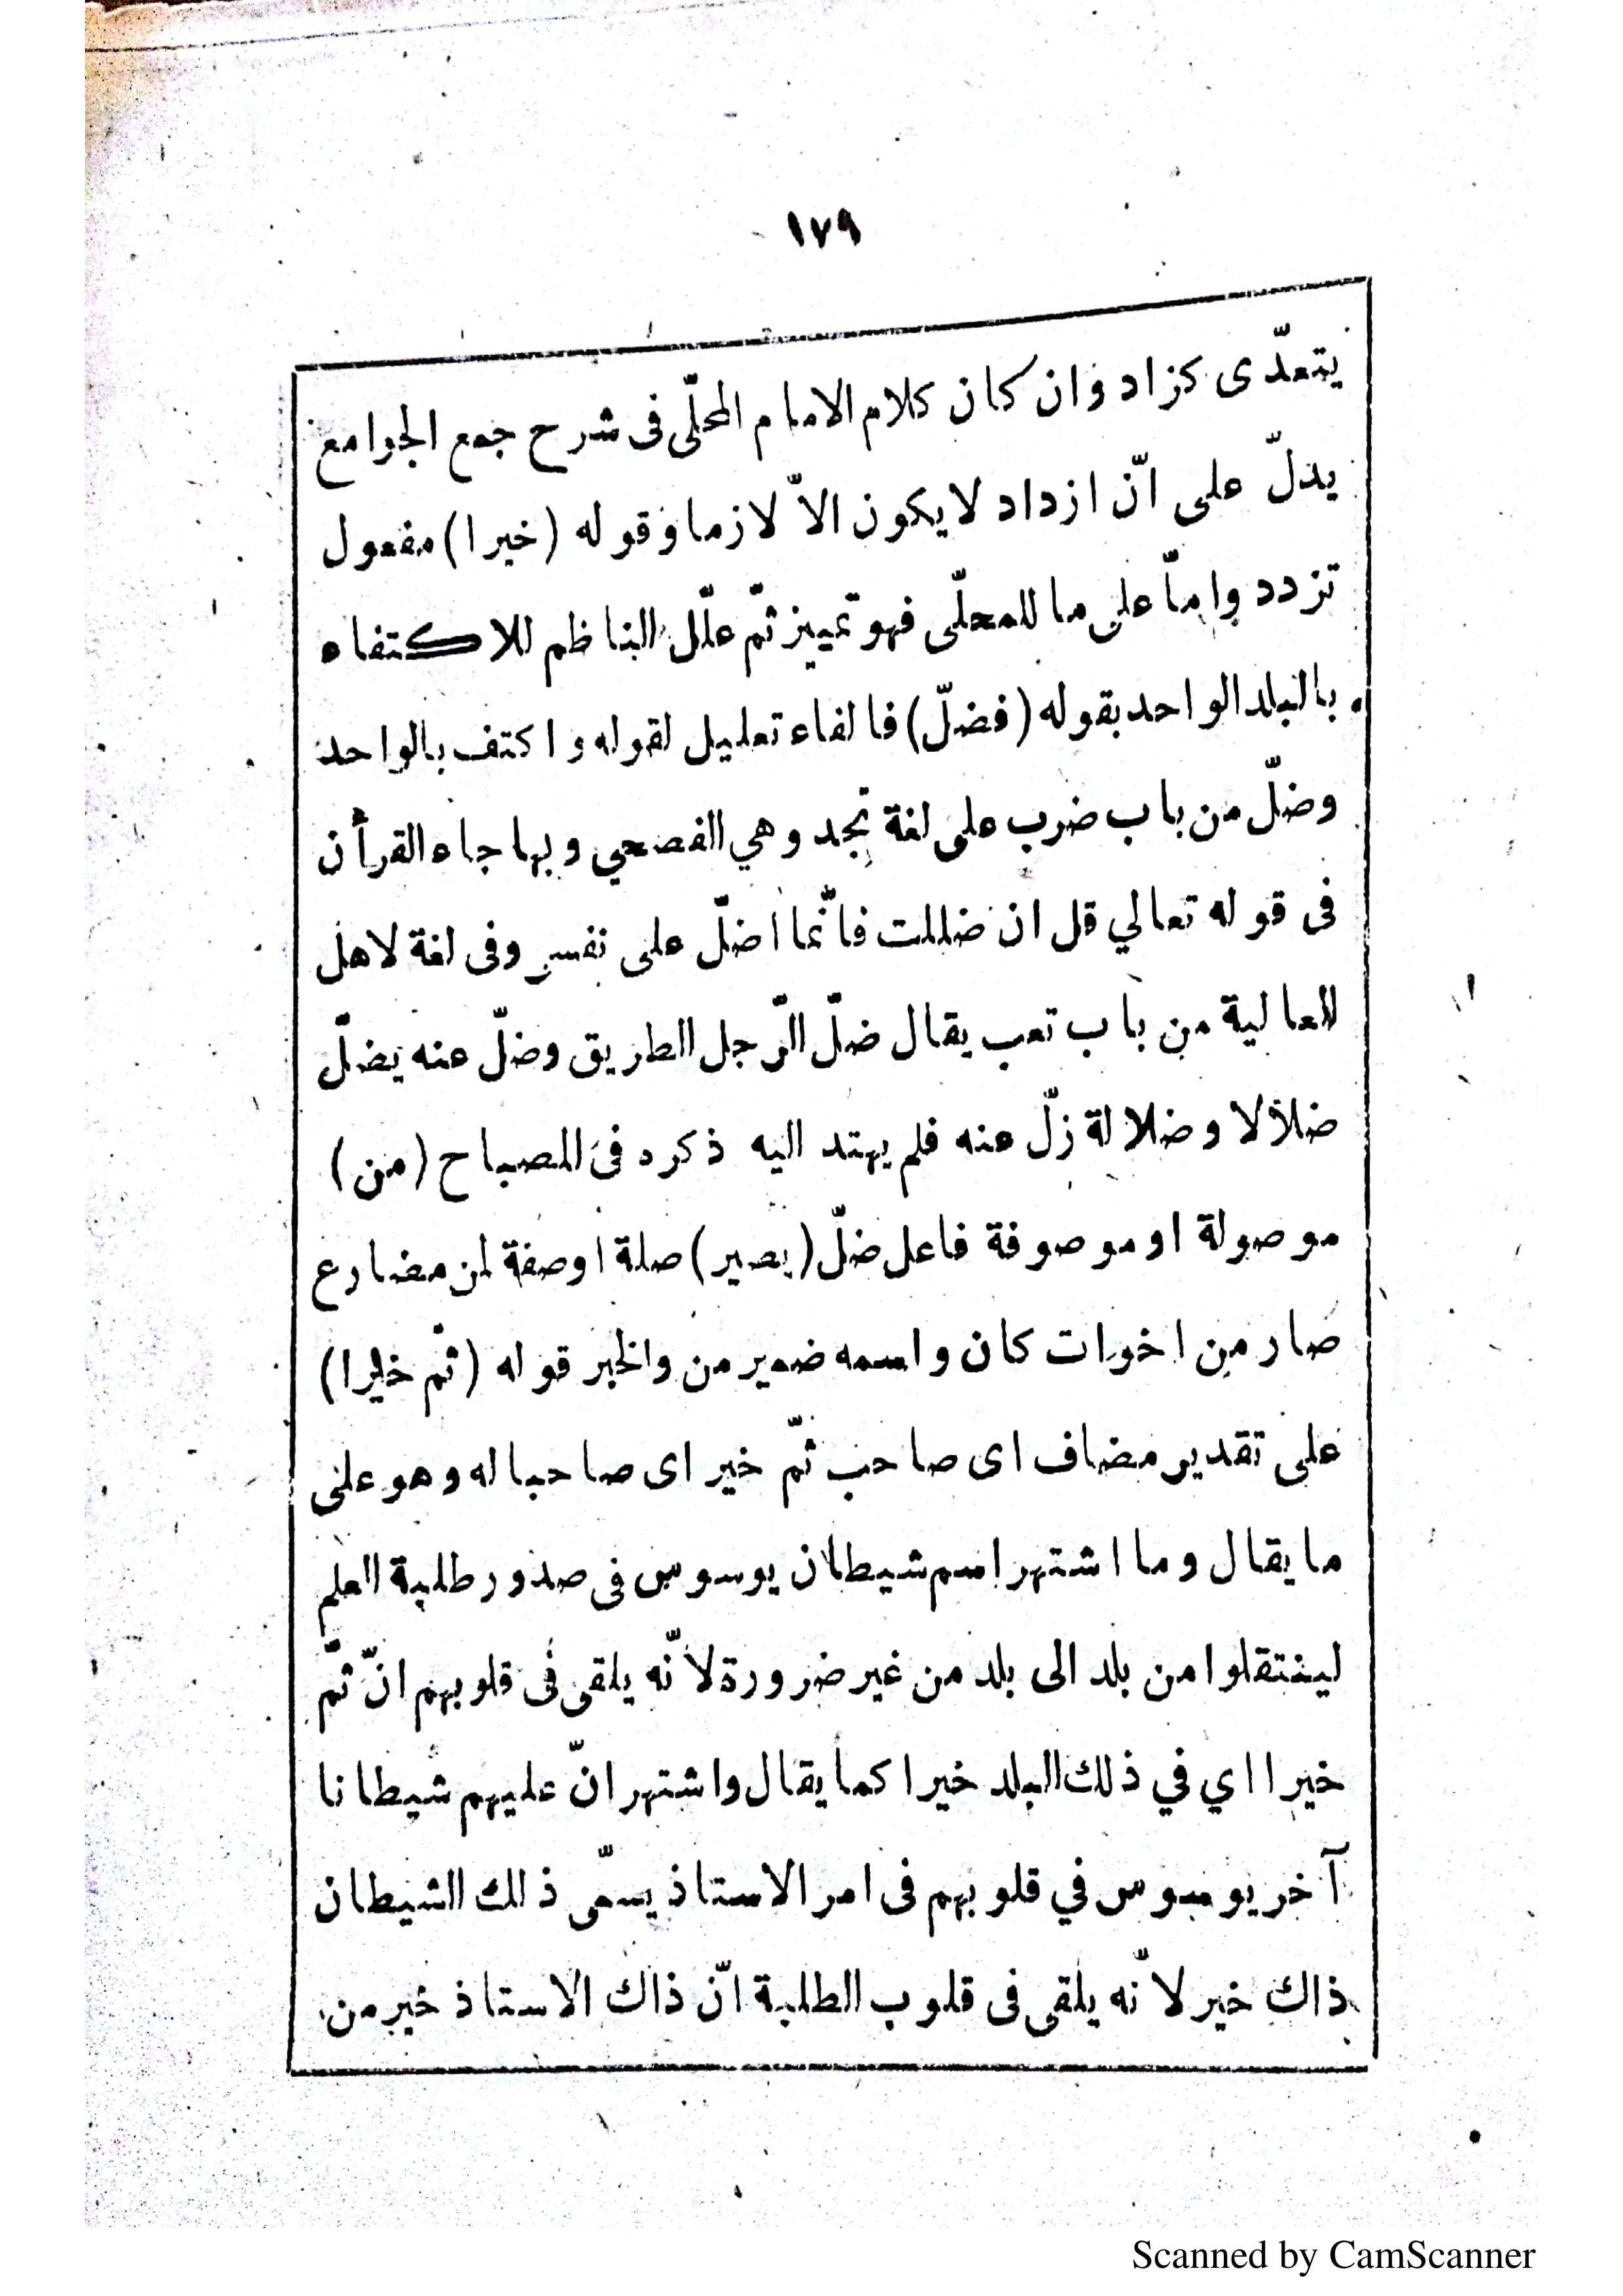 ١٧٩
يتعدّى كزاد وان كان كلام الامام المحلّى فى شرح جمع الجوامع
يدلّ على انّ ازداد لا يكون الاّ لازما وقوله (خيرا) مفعول
تزدد وامّا على ما للمحلّى فهو تمييز ثمّ علّل الناظم للاكتفاء
بالبلد الواحد بقوله (فضلّ) فالفاء تعليل لقوله واكتف بالواحد
وضلّ من باب ضرب على لغة نجد وهي الفصحي وبها جاء القرأن
فى قوله تعالي قل ان ضللت فانّما اضلّ على نفسى وفى لغة لاهل
العالية من باب تعب يقال ضلّ الرّجل الطريق وضلّ عنه يضلّ
ضلالا وضلالة زلّ عنه فلم يهتد اليه ذكره فى المصباح (من)
موصولة او موصوفة فاعل ضلّ (يصير) صلة اوصفة لمن مضارع
صار من اخوات كان واسمه ضمير من والخبر قوله (ثمّ خيرا)
على تقدير مضاف اى صاحب ثمّ خير اى صاحبا له وهو على
ما يقال وما اشتهر اسم شيطان يوسوس فى صدور طلبة العلم
لينتقلوا من بلد الى بلد من غير ضرورة لانّه يلقى فى قلوبهم انّ ثمّ
خيرا اي في ذلك البلد خيرا كما يقال واشتهر انّ عليهم شيطانا
آخر يوسوس في قلوبهم فى امر الاستاذ يسمّى ذلك الشيطان
ذاك خير لانّه يلقى فى قلوب الطلبة انّ ذاك الاستاذ خير من
Scanned by CamScanner